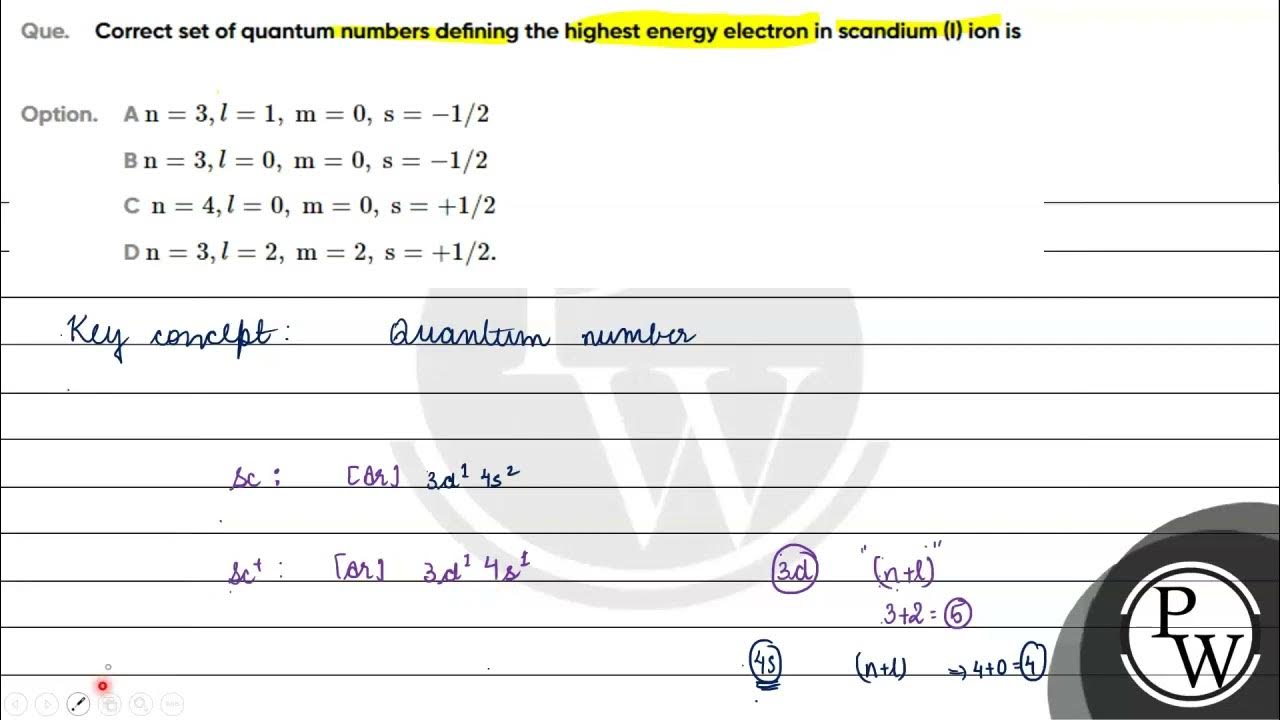 Que. Correct set of quantum numbers defining the highest energy electron in scandium (I) ion is
Option. A n = 3, l = 1, m = 0, s = −1/2
B n = 3, l = 0, m = 0, s = −1/2
C n = 4, l = 0, m = 0, s = +1/2
D n = 3, l = 2, m = 2, s = +1/2.
Key concept: Quantum number
Sc : [Ar] 3d¹ 4s²
Sc⁺ : [Ar] 3d¹ 4s¹
3d "(n+l)"
3+2 = 5
4s (n+l) ⇒ 4+0 = 4
P
W
W